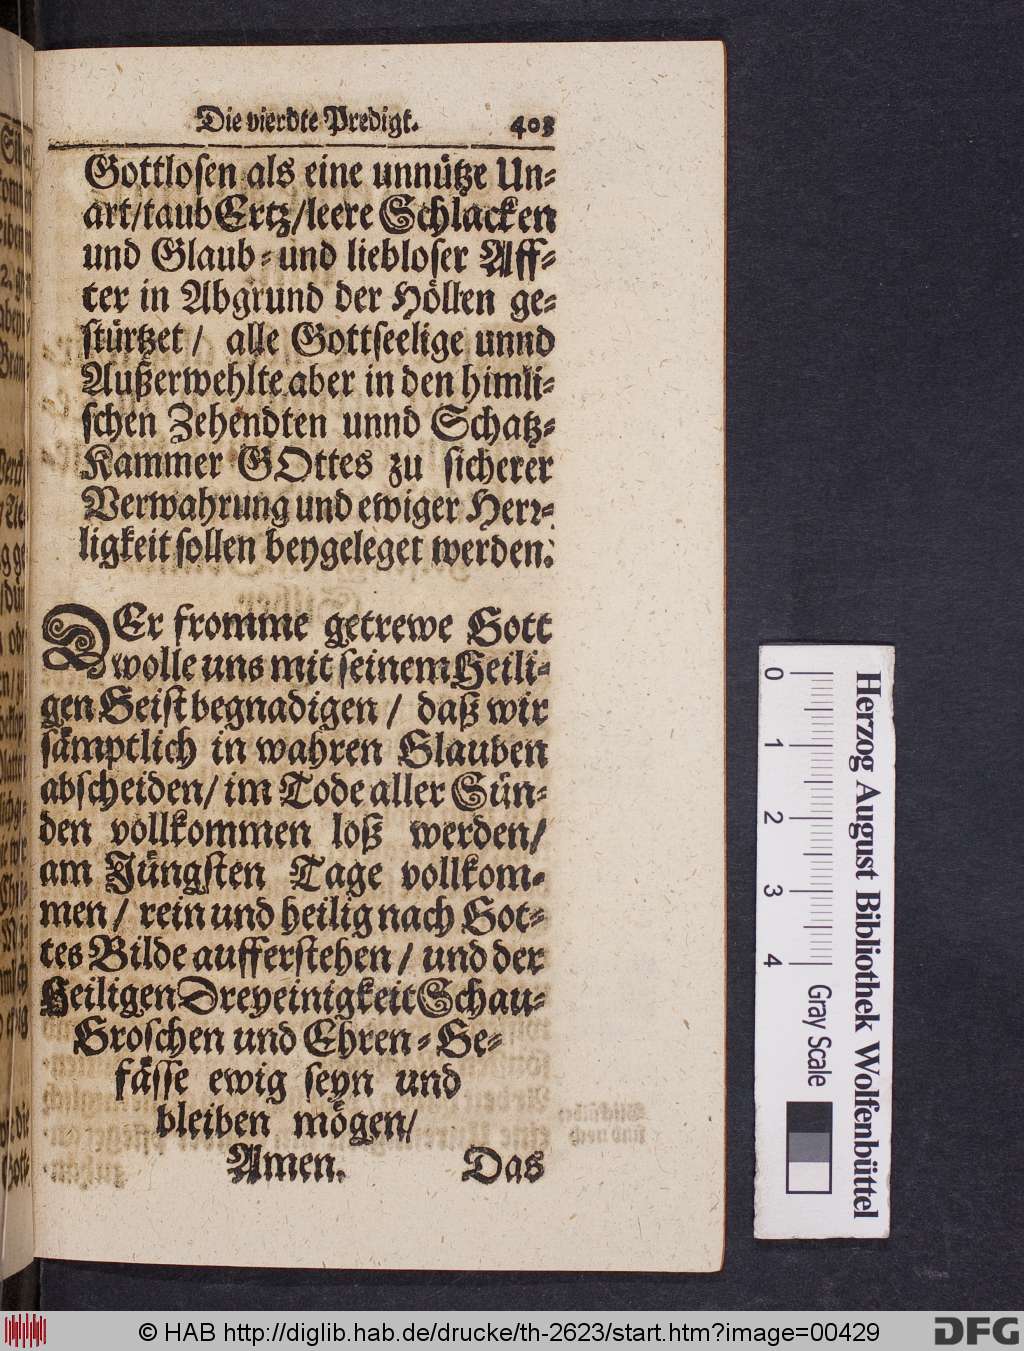 Die vierdte Predigt. 403
Gottlosen als eine unnütze Un-
art/taub Ertz/leere Schlacken
und Glaub- und liebloser Aff-
ter in Abgrund der Höllen ge-
stürtzet/ alle Gottseelige unnd
Außerwehlte aber in den himli-
schen Zehendten unnd Schatz-
Kammer GOttes zu sicherer
Verwahrung und ewiger Herr-
ligkeit sollen beygeleget werden.
DEr fromme getrewe Gott
wolle uns mit seinem Heili-
gen Geist begnadigen/ daß wir
sämptlich in wahren Glauben
abscheiden/ im Tode aller Sün-
den vollkommen loß werden/
am Jüngsten Tage vollkom-
men/ rein und heilig nach Got-
tes Bilde aufferstehen/ und der
Heiligen Dreyeinigkeit Schau-
Groschen und Ehren-Ge-
fässe ewig seyn und
bleiben mögen/
Amen. Das
0 1 2 3 4 Gray Scale
Herzog August Bibliothek Wolfenbüttel
© HAB http://diglib.hab.de/drucke/th-2623/start.htm?image=00429
DFG